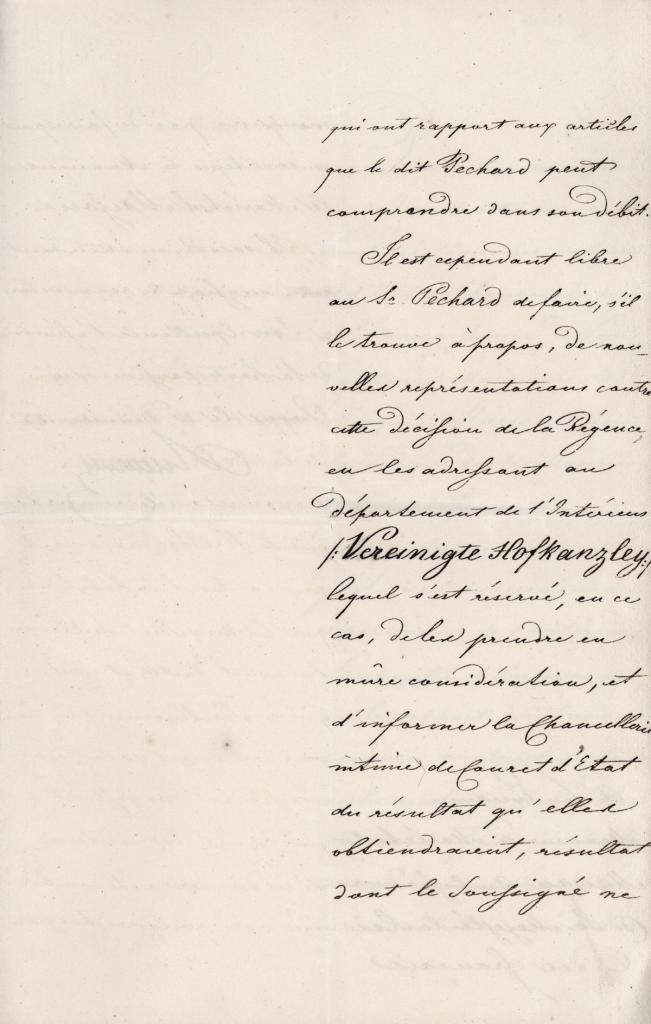 qui ont rapport aux articles
que le dit Pechard peut
comprendre dans son débit.
Il est cependant libre
au Sr. Pechard de faire, s'il
le trouve à propos, de nou-
velles représentations contre
cette décision de la Régence,
en les adressant au
département de l'Intérieur
/: Vereinigte Hofkanzley :/
lequel s'est réservé, en ce
cas, de les prendre en
mûre considération, et
d'informer la Chancellerie
intime de Cour et d'Etat
du résultat qu'elles
obtiendraient, résultat
dont le Soussigné ne